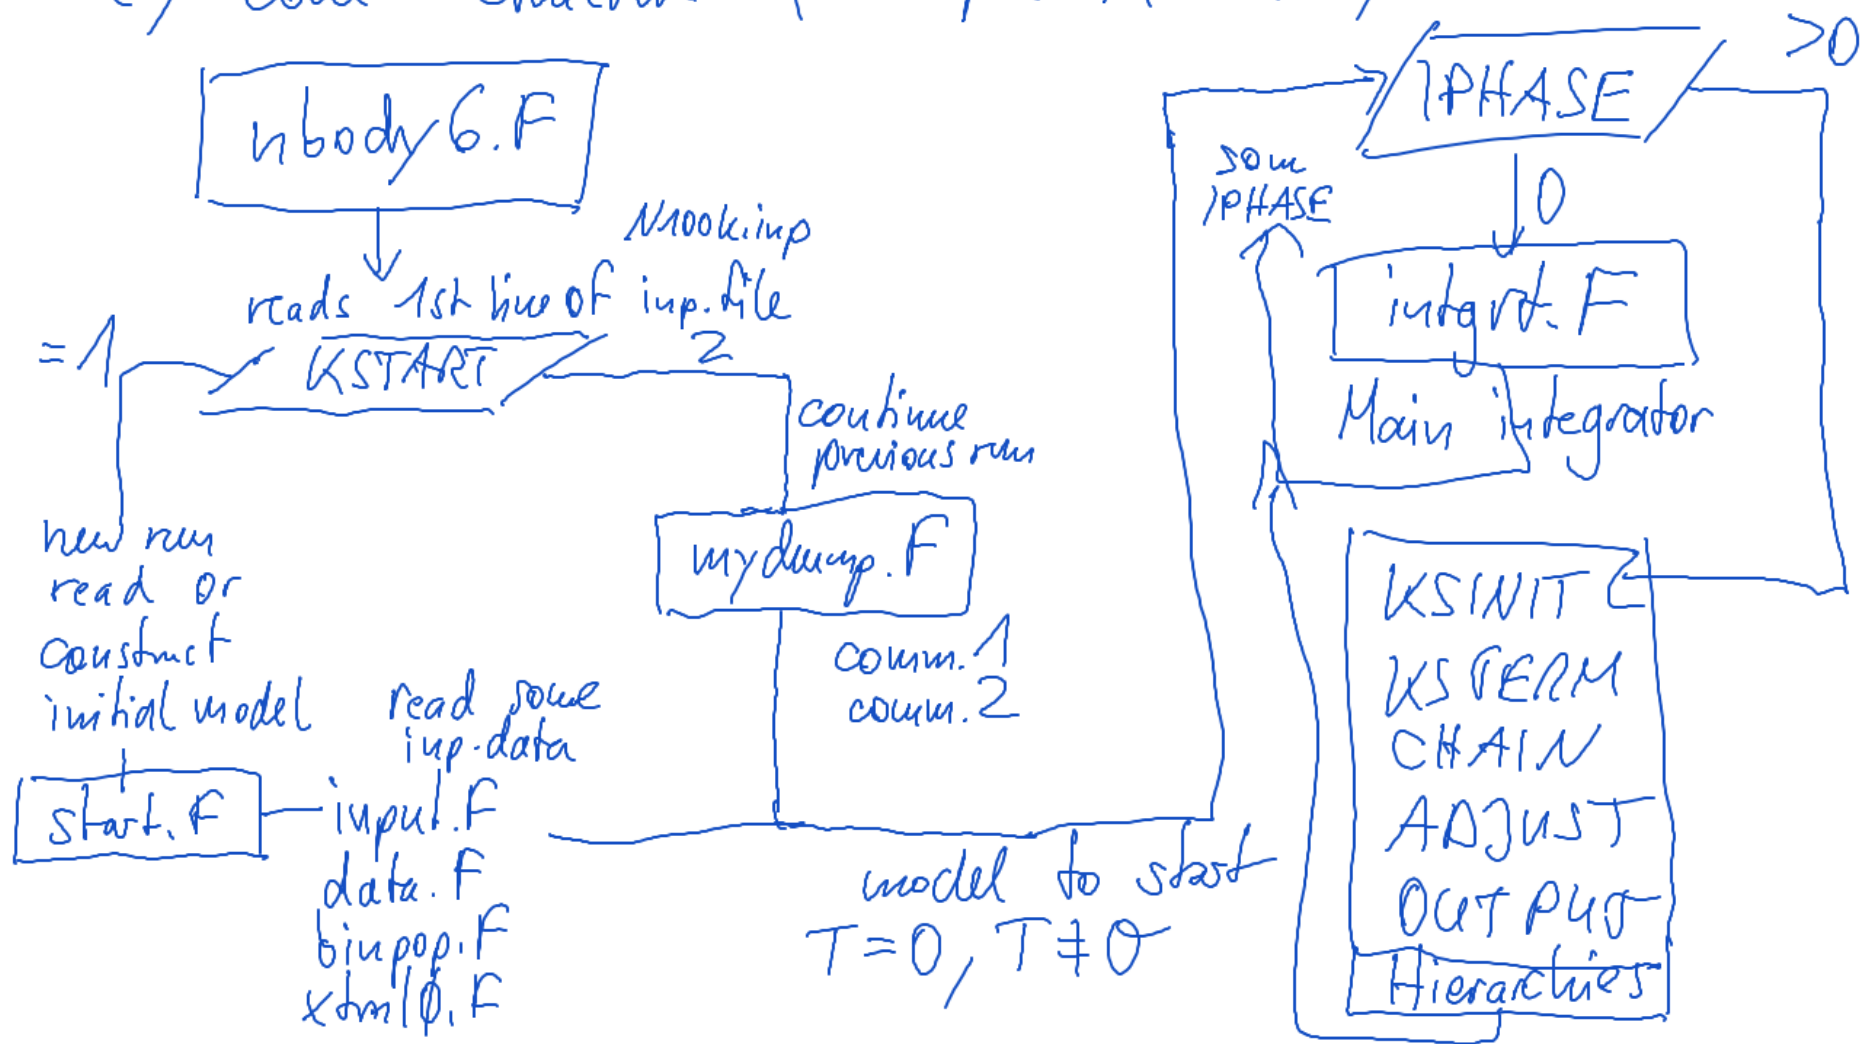 nbody6.F
N100k.inp
reads 1st line of inp.file
=1
KSTART
2
continue
previous run
new run
read or
construct
initial model
mydump.F
comm.1
comm.2
read some
inp.data
start.F
input.F
data.F
binpop.F
model to start
T=0, T≠0
>0
IPHASE
som
IPHASE
0
intgrt.F
Main integrator
KSINIT
KSTERM
CHAIN
ADJUST
OUTPUT
Hierarchies